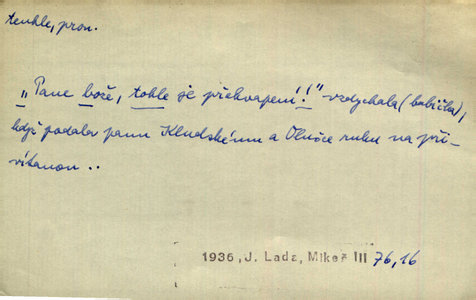 tenhle, pron.
„Pane bože, tohle je překvapení!!" vzdychala (babička),
když podala panu Kludskému a Olušce ruku na při-
vítanou ..
1936, J. Lada, Mikeš III 76,16